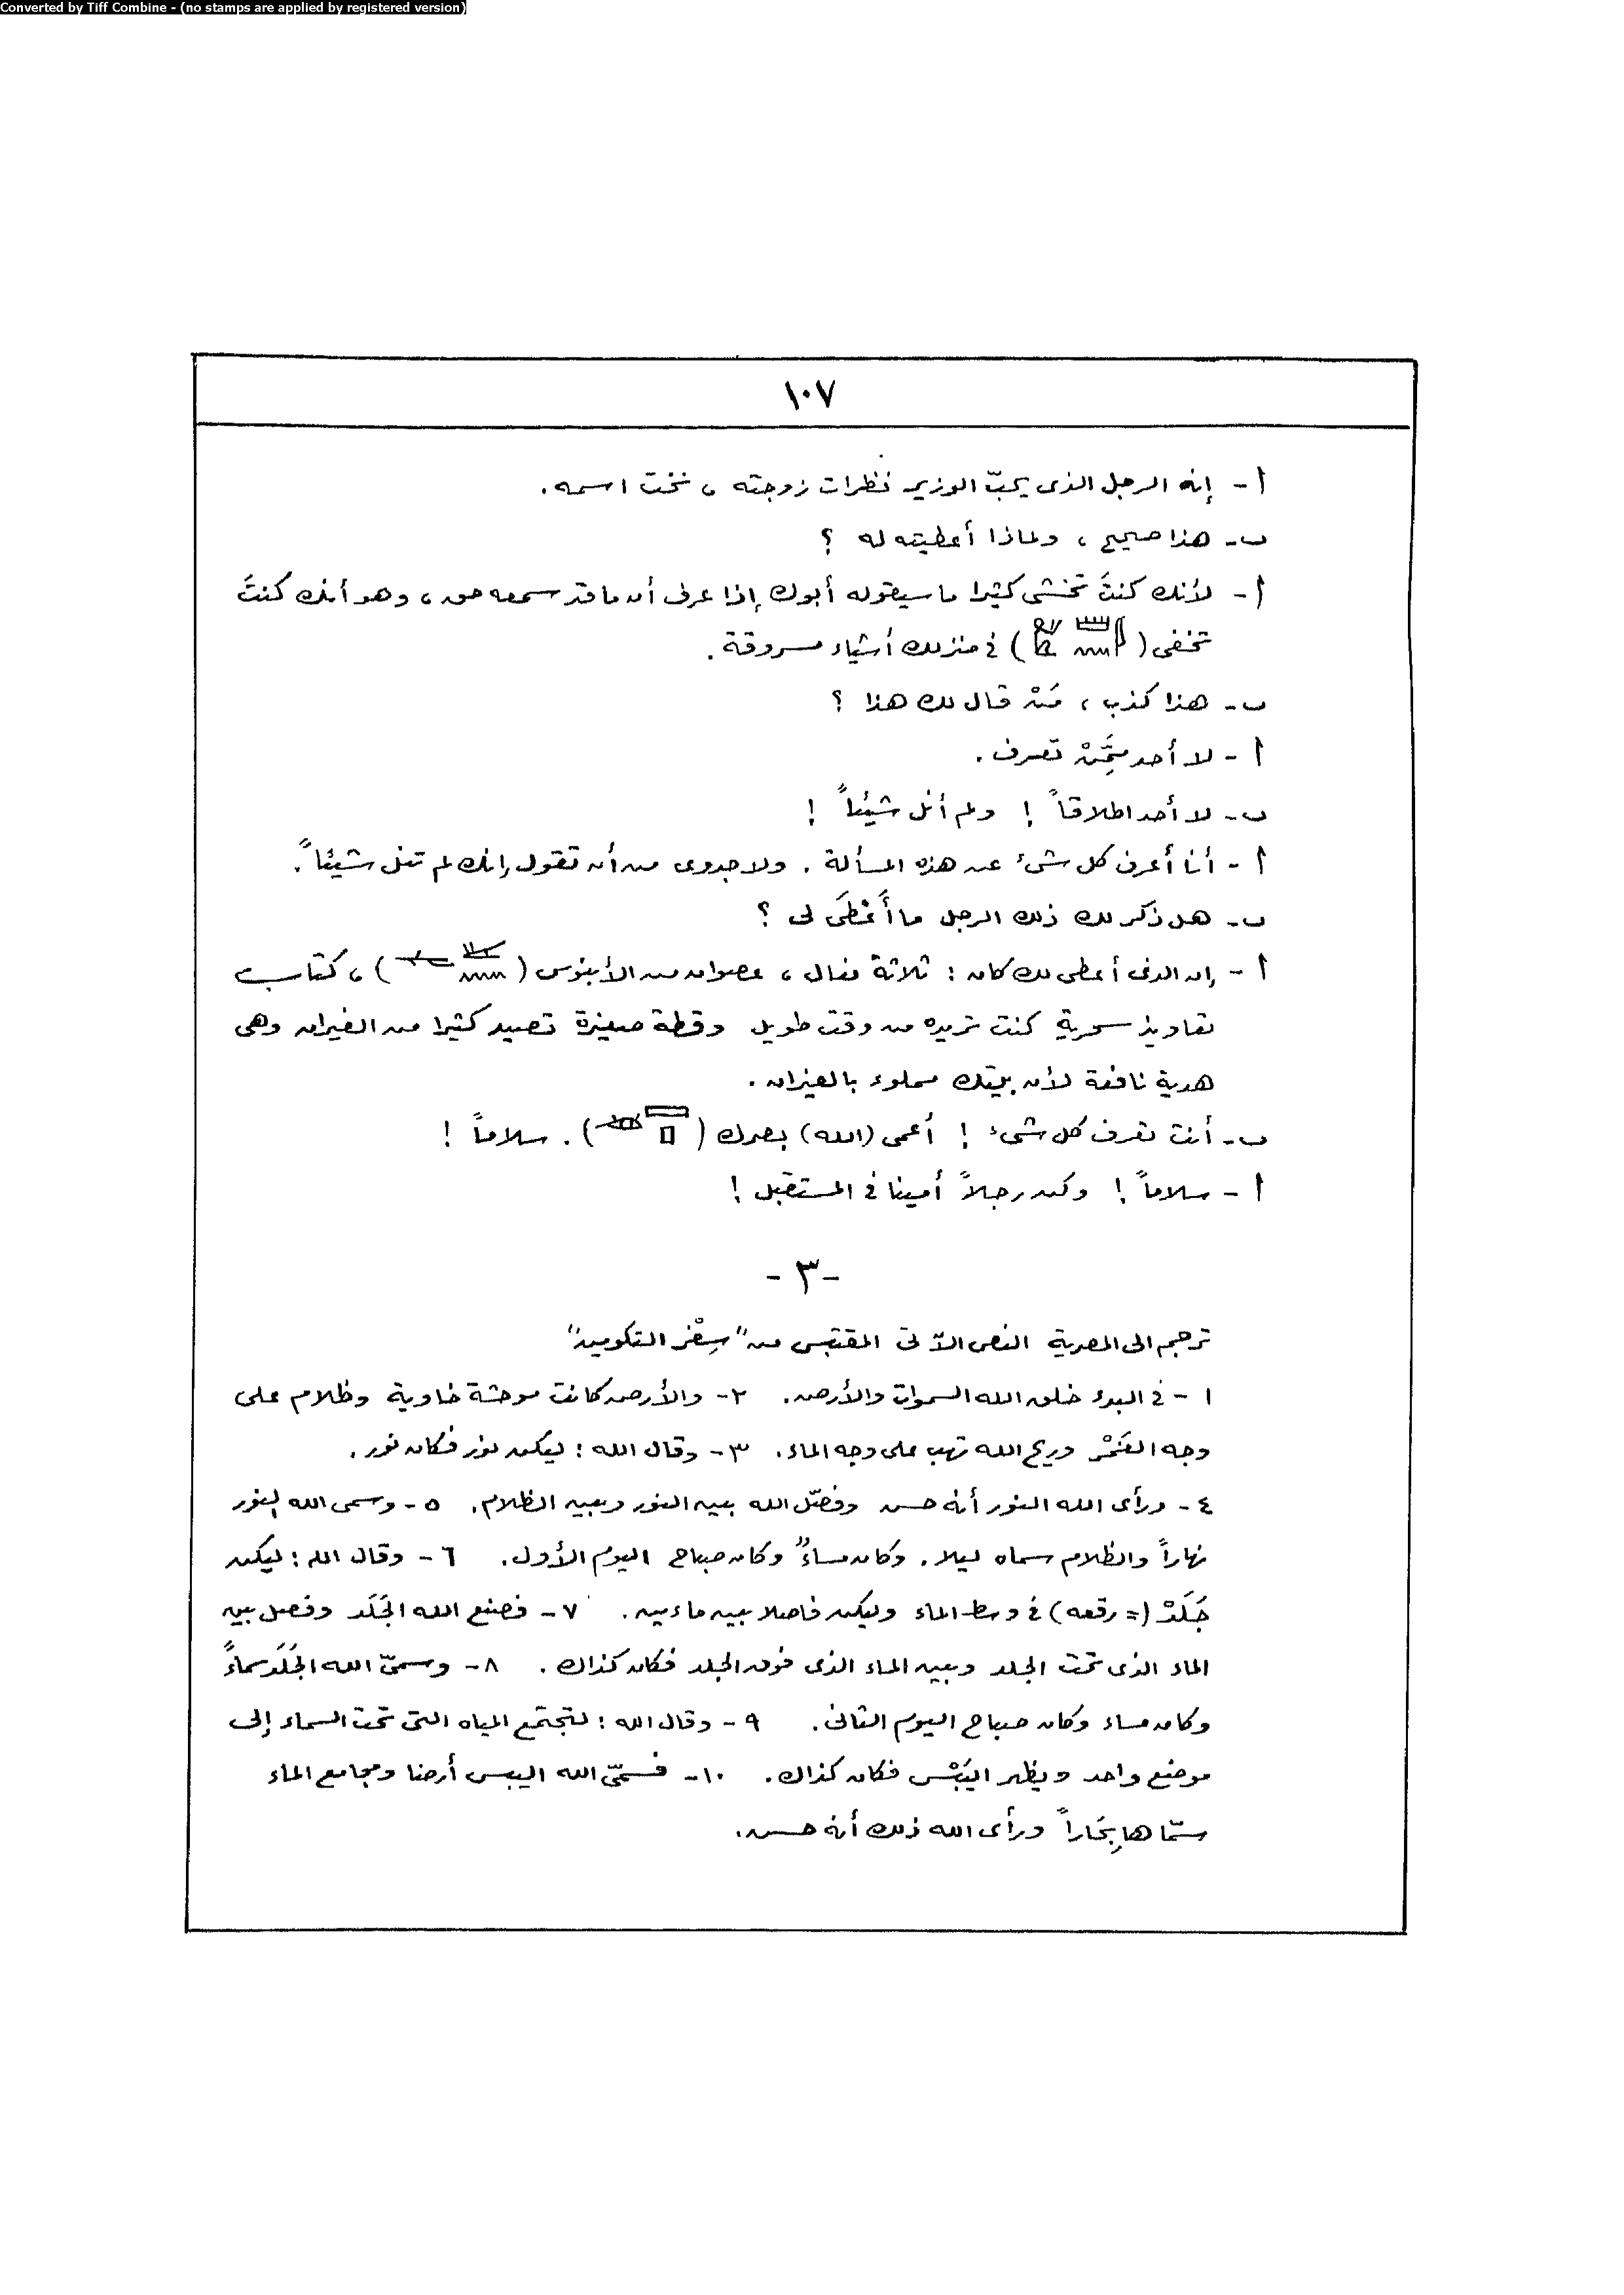 Converted by Tiff Combine - (no stamps are applied by registered version)
١٠٧
أ - إنه الرجل الذى يحبّ الوزير نظرات زوجته ، اسمه .
ب - هذا صحيح ، ولماذا أعطيته له ؟
أ - لأنك كنتَ تخشى كثيرا ما سيقوله أبوك إذا عرف أن ما قد سمعه حق ، وهو أنك كنتَ
تخفى ( ) فى منزلك أشياء مسروقة .
ب - هذا كذب ، مَنْ قال لك هذا ؟
أ - لا أحد مِمَّنْ تعرف .
ب - لا أحد اطلاقاً ! ولم أنل شيئاً !
أ - أنا أعرف كل شىء عن هذه المسألة . ولا جدوى من أن تقول إنك لم تنل شيئاً .
ب - هل ذكر لك ذلك الرجل ما أَعْطَى لى ؟
أ - إن الذى أعطى لك كان : ثلاثة نعال ، عصوان من الأبنوس ( ) ، كتاب
تعاويذ سحرية كنت تريده من وقت طويل وقطة صغيرة تصيد كثيرا من الفيران وهى
هدية نافعة لأن بيتك مملوء بالفيران .
ب - أنت تعرف كل شىء ! أعمى (الله) بصرك ( ) . سلاماً !
أ - سلاماً ! وكن رجلاً أمينا فى المستقبل !
- ٣ -
ترجم الى المصرية النص الآتى المقتبس من "سِفْر التكوين"
١ - فى البدء خلق الله السموات والأرض . ٢ - والأرض كانت موحشة خاوية وظلام على
وجه الغَمْر وريح الله تهب على وجه الماء . ٣ - وقال الله : ليكن نور فكان نور .
٤ - ورأى الله النور أنه حسن وفصَل الله بين النور وبين الظلام . ٥ - وسمى الله النور
نهاراً والظلام سماه ليلا . وكان مساءٌ وكان صباح اليوم الأول . ٦ - وقال الله : ليكن
جَلَدْ (= رقعه) فى وسط الماء وليكن فاصلا بين ماءين . ٧ - فصنع الله الجَلَد وفصل بين
الماء الذى تحت الجلد وبين الماء الذى فوق الجلد فكان كذاك . ٨ - وسمىّ الله الجَلَد سماءً
وكان مساء وكان صباح اليوم الثانى . ٩ - وقال الله : لتجتمع المياه التى تحت السماء إلى
موضع واحد ويظهر اليَبْس فكان كذاك . ١٠ - فسمّى الله اليبس أرضا ومجامع الماء
سمّاها بِحَاراً ورأى الله ذلك أنه حسن .